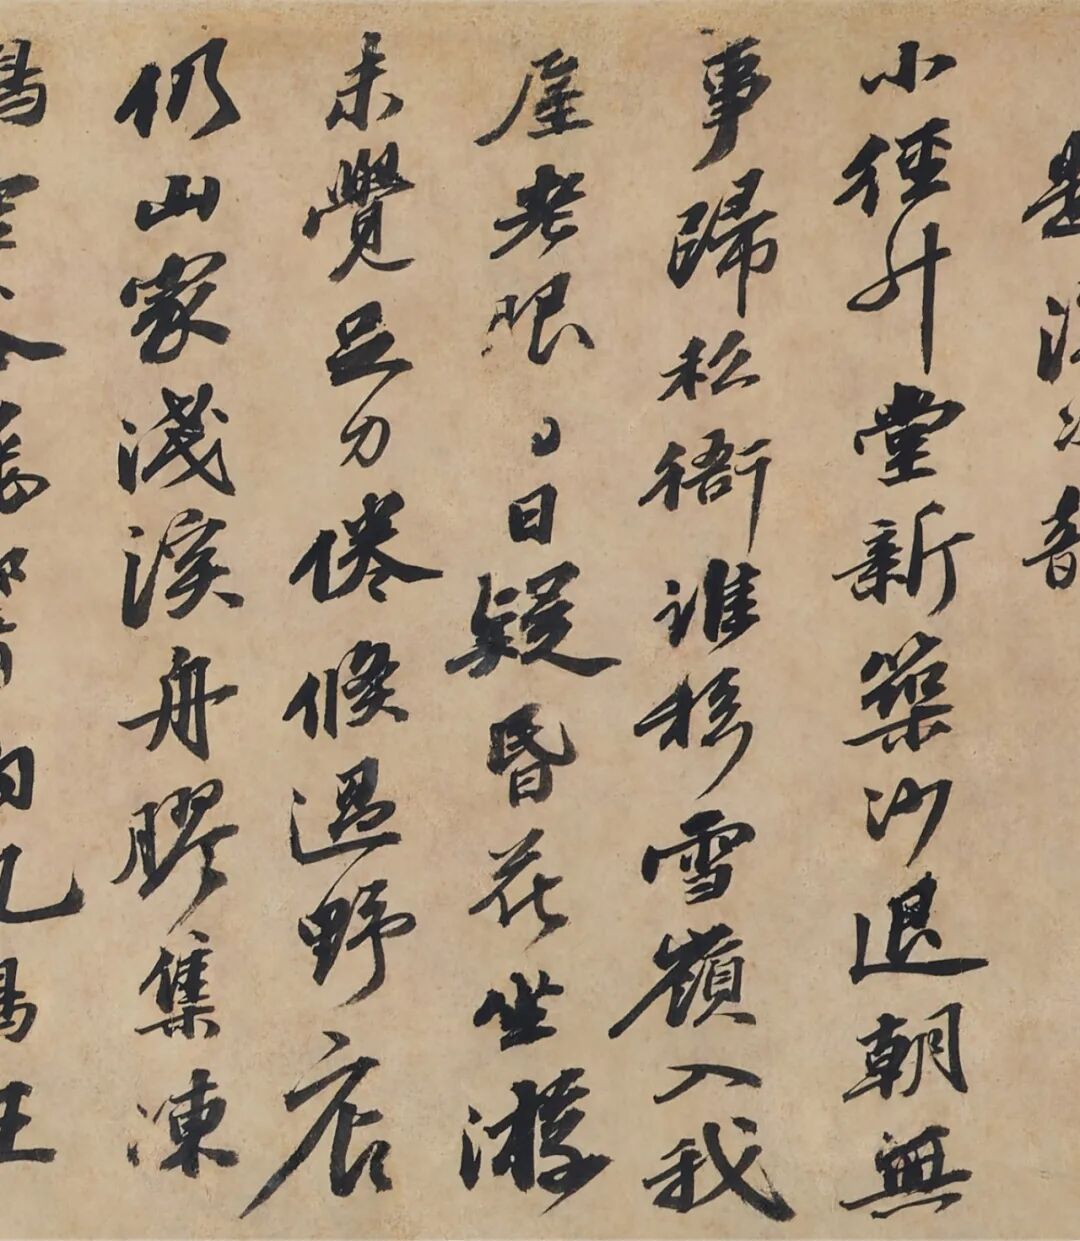 小徑升堂新築沙退朝無
事歸私衙誰移雪嶺入我
屋老眼日疑昏花坐游
未覺足力倦倏過野店
仍山家淺溪舟膠集凍